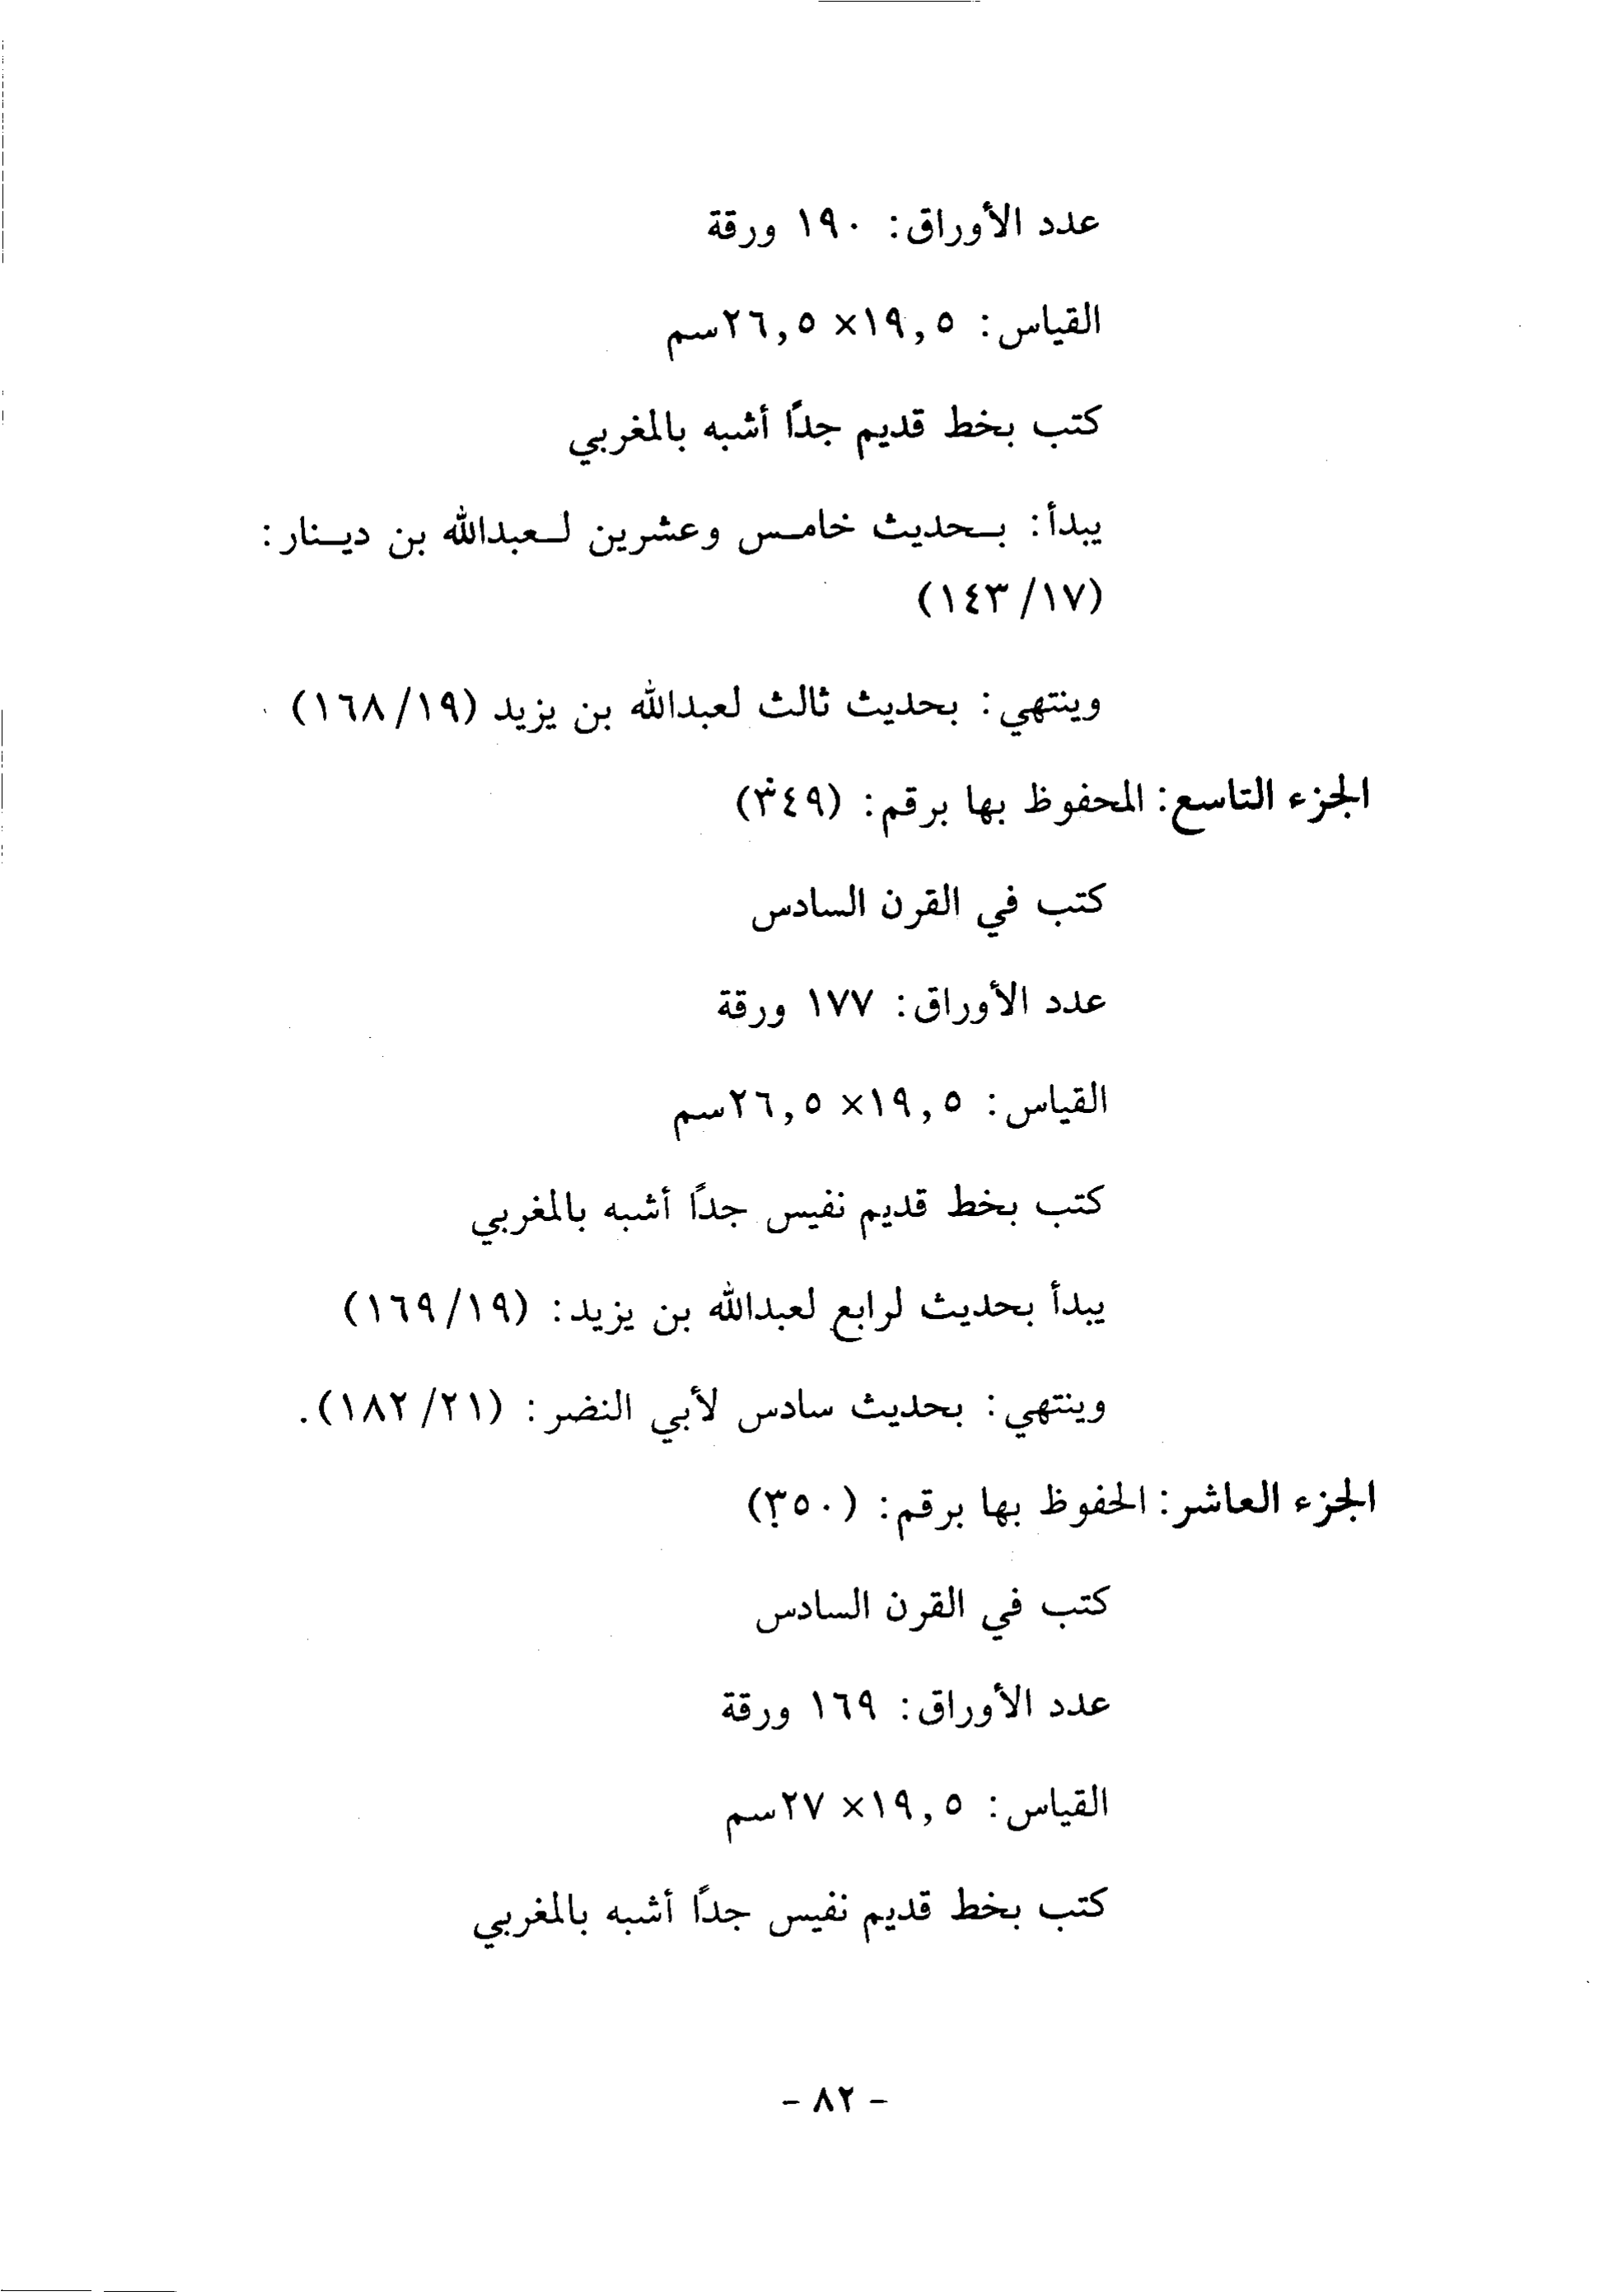 عدد الأوراق: ١٩٠ ورقة
القياس: ١٩,٥× ٢٦,٥سم
كتب بخط قديم جداً أشبه بالمغربي
يبدأ: بـحديث خامـس وعشرين لـعبدالله بن ديـنار:
(١٤٣/١٧)
وينتهي: بحديث ثالث لعبدالله بن يزيد (١٦٨/١٩)
الجزء التاسع: المحفوظ بها برقم: (٣٤٩)
كتب في القرن السادس
عدد الأوراق: ١٧٧ ورقة
القياس: ١٩,٥× ٢٦,٥سم
كتب بخط قديم نفيس جداً أشبه بالمغربي
يبدأ بحديث لرابع لعبدالله بن يزيد: (١٦٩/١٩)
وينتهي: بحديث سادس لأبي النضر: (١٨٢/٢١).
الجزء العاشر: الحفوظ بها برقم: (٣٥٠)
كتب في القرن السادس
عدد الأوراق: ١٦٩ ورقة
القياس: ١٩,٥× ٢٧سم
كتب بخط قديم نفيس جداً أشبه بالمغربي
- ٨٢ -